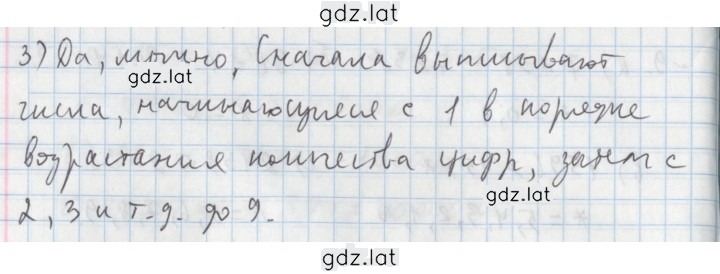 gdz.lat
3) Да, можно, Сначала выписывают
gdz.lat
числа, начинающиеся с 1 в порядке
возрастания количества цифр, затем с
gdz.lat
2, 3 и т.д. до 9.
gdz.lat